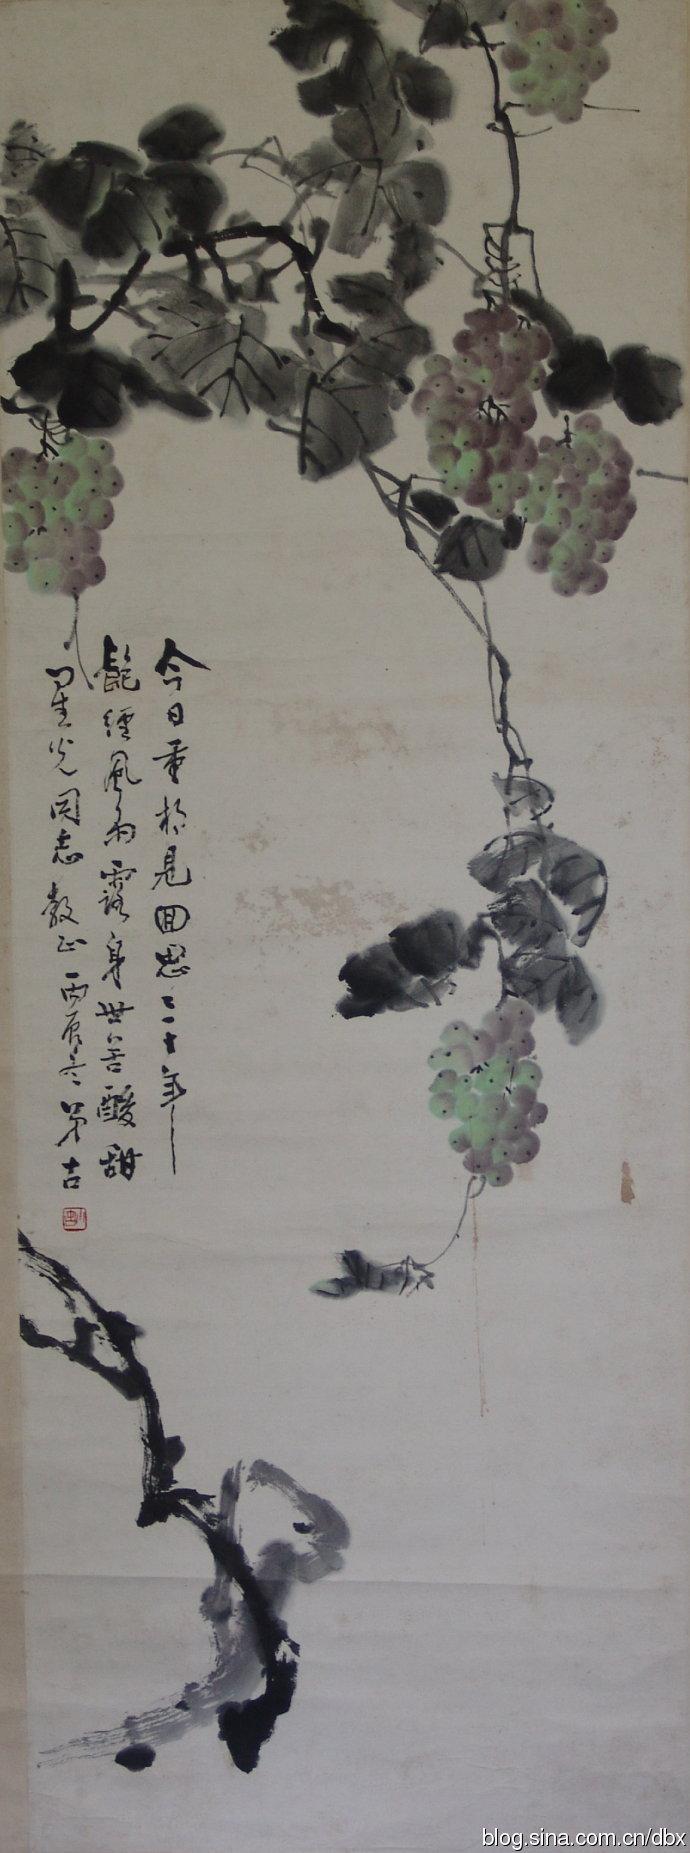 今日重相見回思三十年
飽經風雨露身世苦酸甜
星光同志教正丙辰冬
blog.sina.com.cn/dbx